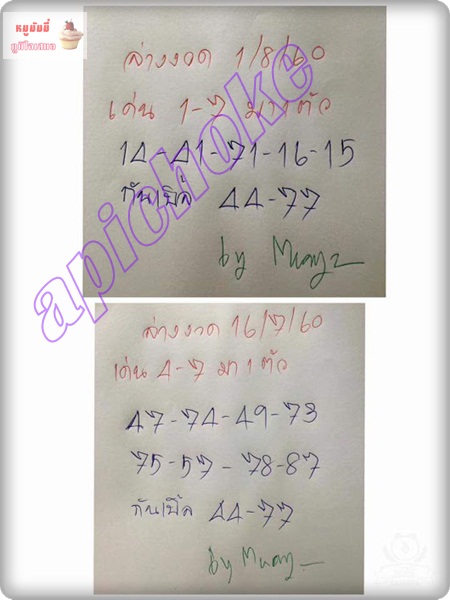 หมูมัมมี่
ภูมิใจเสนอ
ล่างงวด 1/8/60
เด่น 1-7 มา 1 ตัว
14-41-71-16-15
กันเบิ้ล 44-77
by Muayz
apichoke
ล่างงวด 16/7/60
เด่น 4-7 มา 1 ตัว
47-74-49-73
75-57-78-87
กันเบิ้ล 44-77